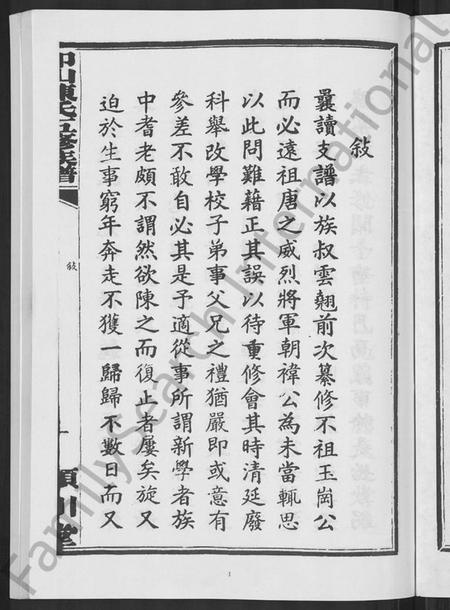 敍
曩讀支譜以族叔雲翹前次纂修不祖玉崗公
而必遠祖唐之威烈將軍朝禕公為未當輒思
以此問難藉正其誤以待重修會其時清廷廢
科舉改學校子弟事父兄之禮猶嚴即或意有
參差不敢自必其是予適從事所謂新學者族
中耆老頗不謂然欲陳之而復止者屢矣旋又
迫於生事窮年奔走不獲一歸歸不數日而又
陳氏五修族譜
敍
一
潁川堂
1
FamilySearch International